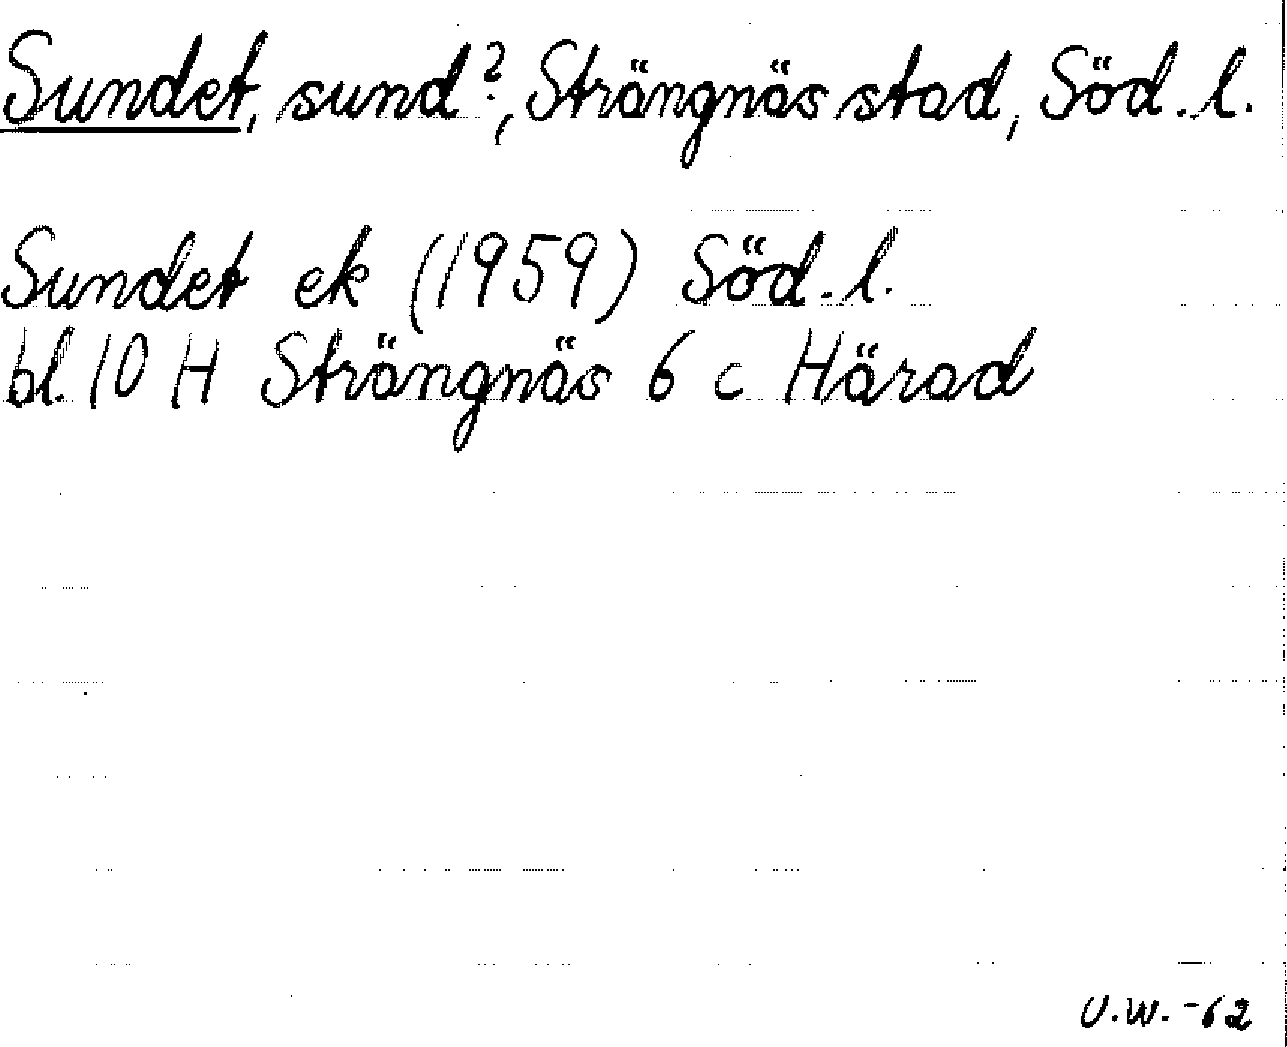 Sundet, sund?, Strängnäs stad, Söd. l.
Sundet ek (1959) Söd. l.
bl. 10 H Strängnäs 6 c Härad
U.W. -62